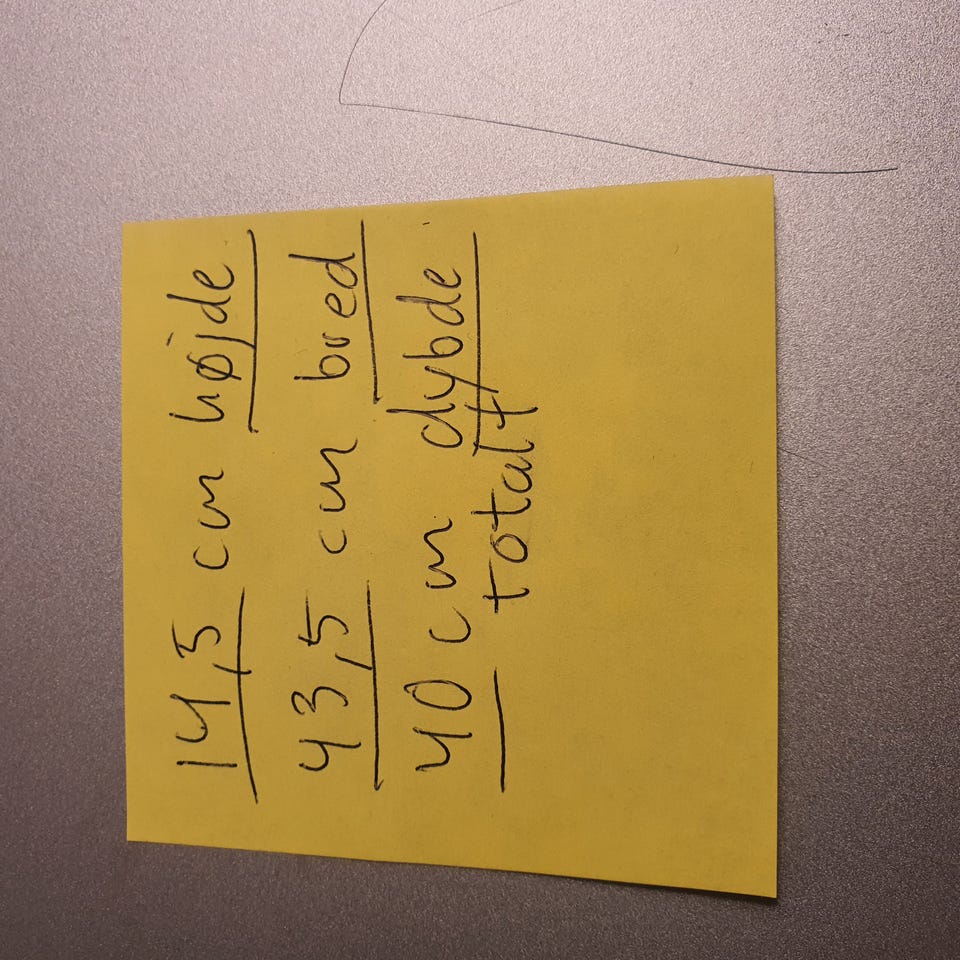 14,5 cm højde
43,5 cm bred
40 cm dybde
totalt